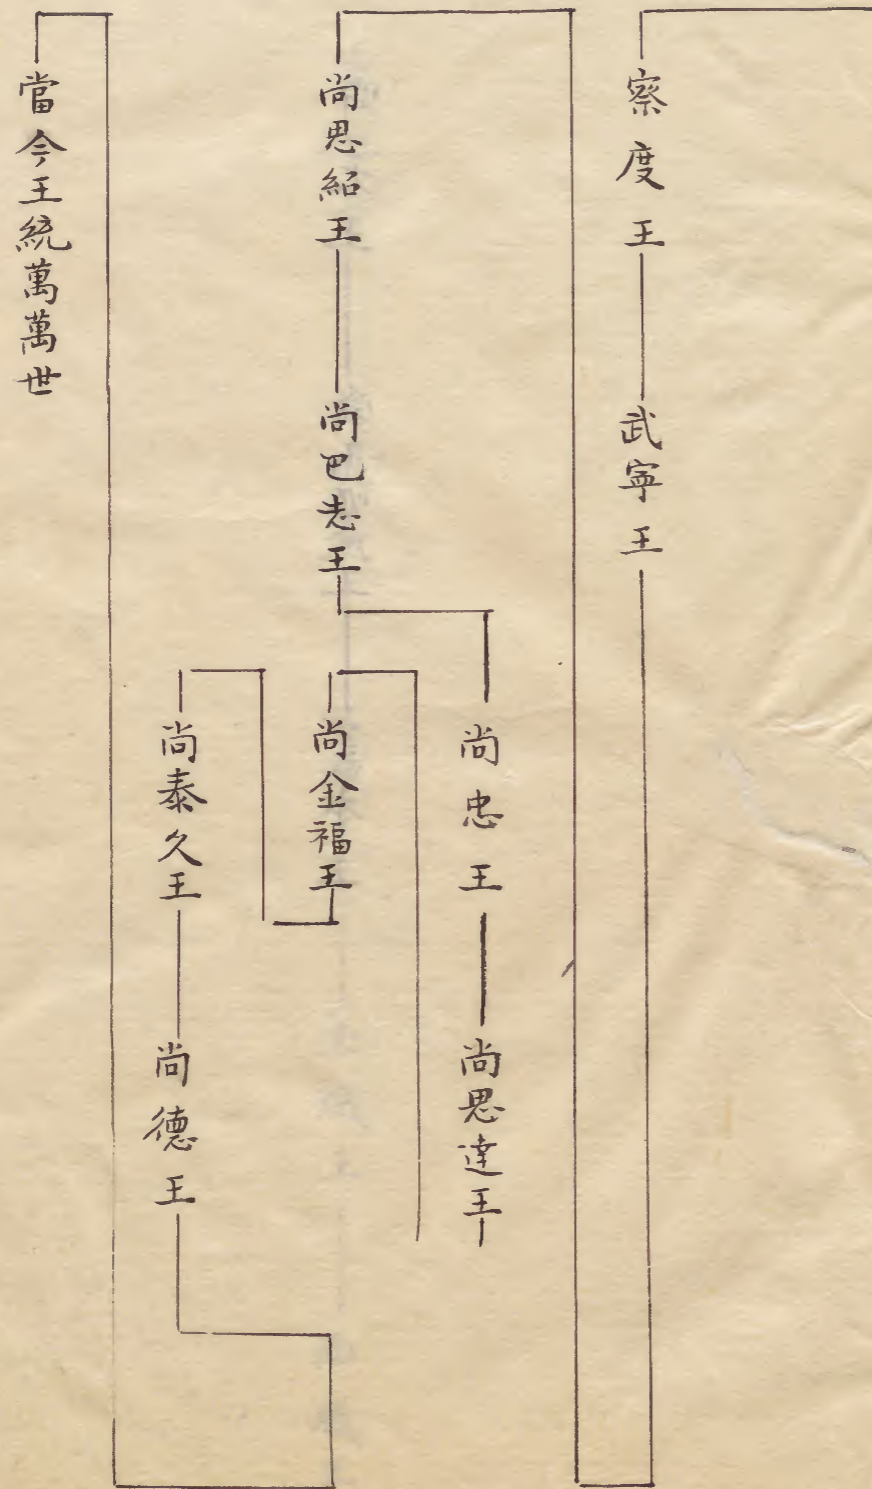 察度王
武寧王
尚思紹王
尚巴志王
尚忠王
尚思達王
尚金福王
尚泰久王
尚德王
當今王統萬萬世